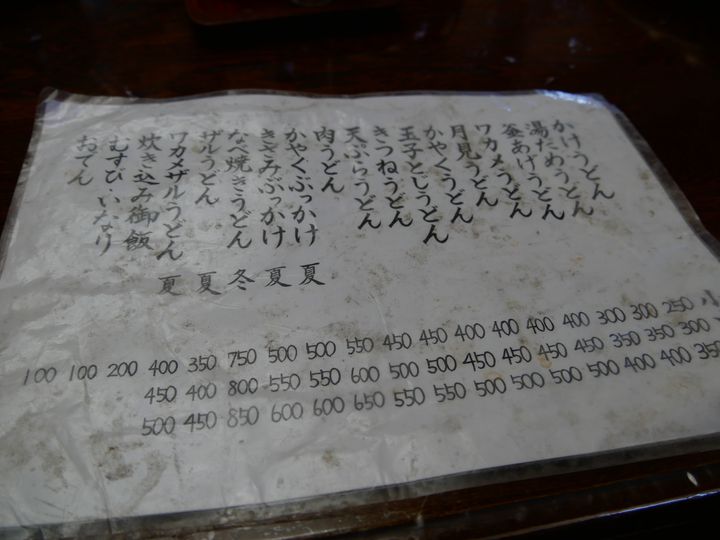 かけうどん
湯だめうどん
釜あげうどん
ワカメうどん
月見うどん
かやくうどん
玉子とじうどん
きつねうどん
天ぷらうどん
肉うどん
かやくぶっかけ 夏
きざみぶっかけ 夏
なべ焼きうどん 冬
ザルうどん 夏
ワカメザルうどん 夏
炊き込み御飯
むすび・いなり
おでん
100 100 200 400 350 750 500 500 550 450 450 400 400 400 400 300 300 250 小
450 400 800 550 550 600 500 500 450 450 450 450 350 350 300
500 450 850 600 600 650 550 550 500 500 500 500 400 400 350